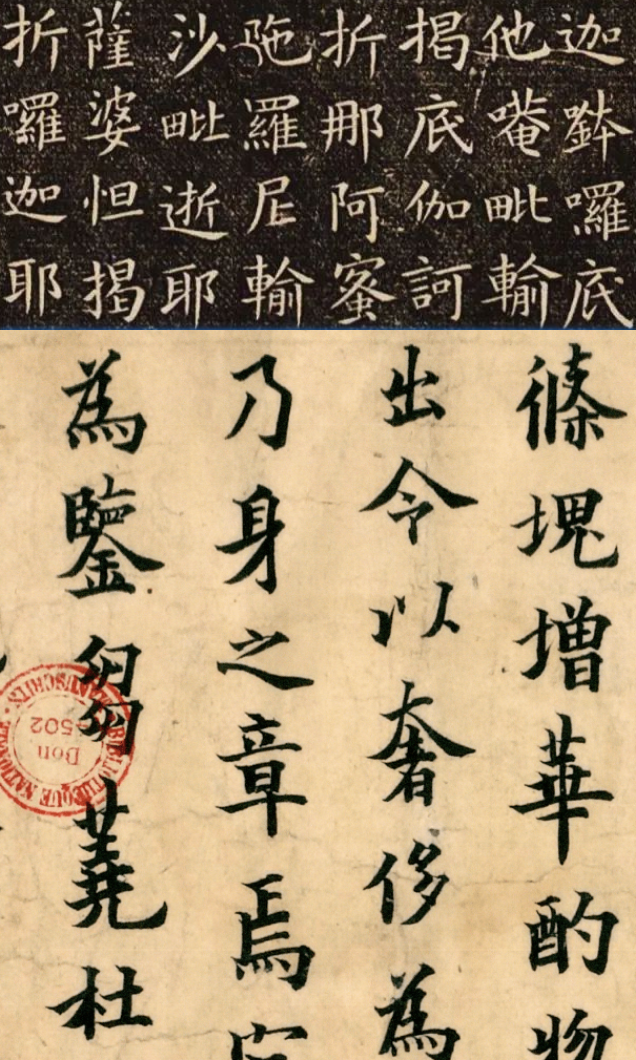 迦鉢囉底
他唵毗輸
揭底伽訶
折那阿蜜
陁羅尼輸
沙毗逝耶
薩婆怛揭
折囉迦耶
條塊增華酌物
出令以奢侈為
乃身之章焉
為鑒芻蕘杜
Don
4502